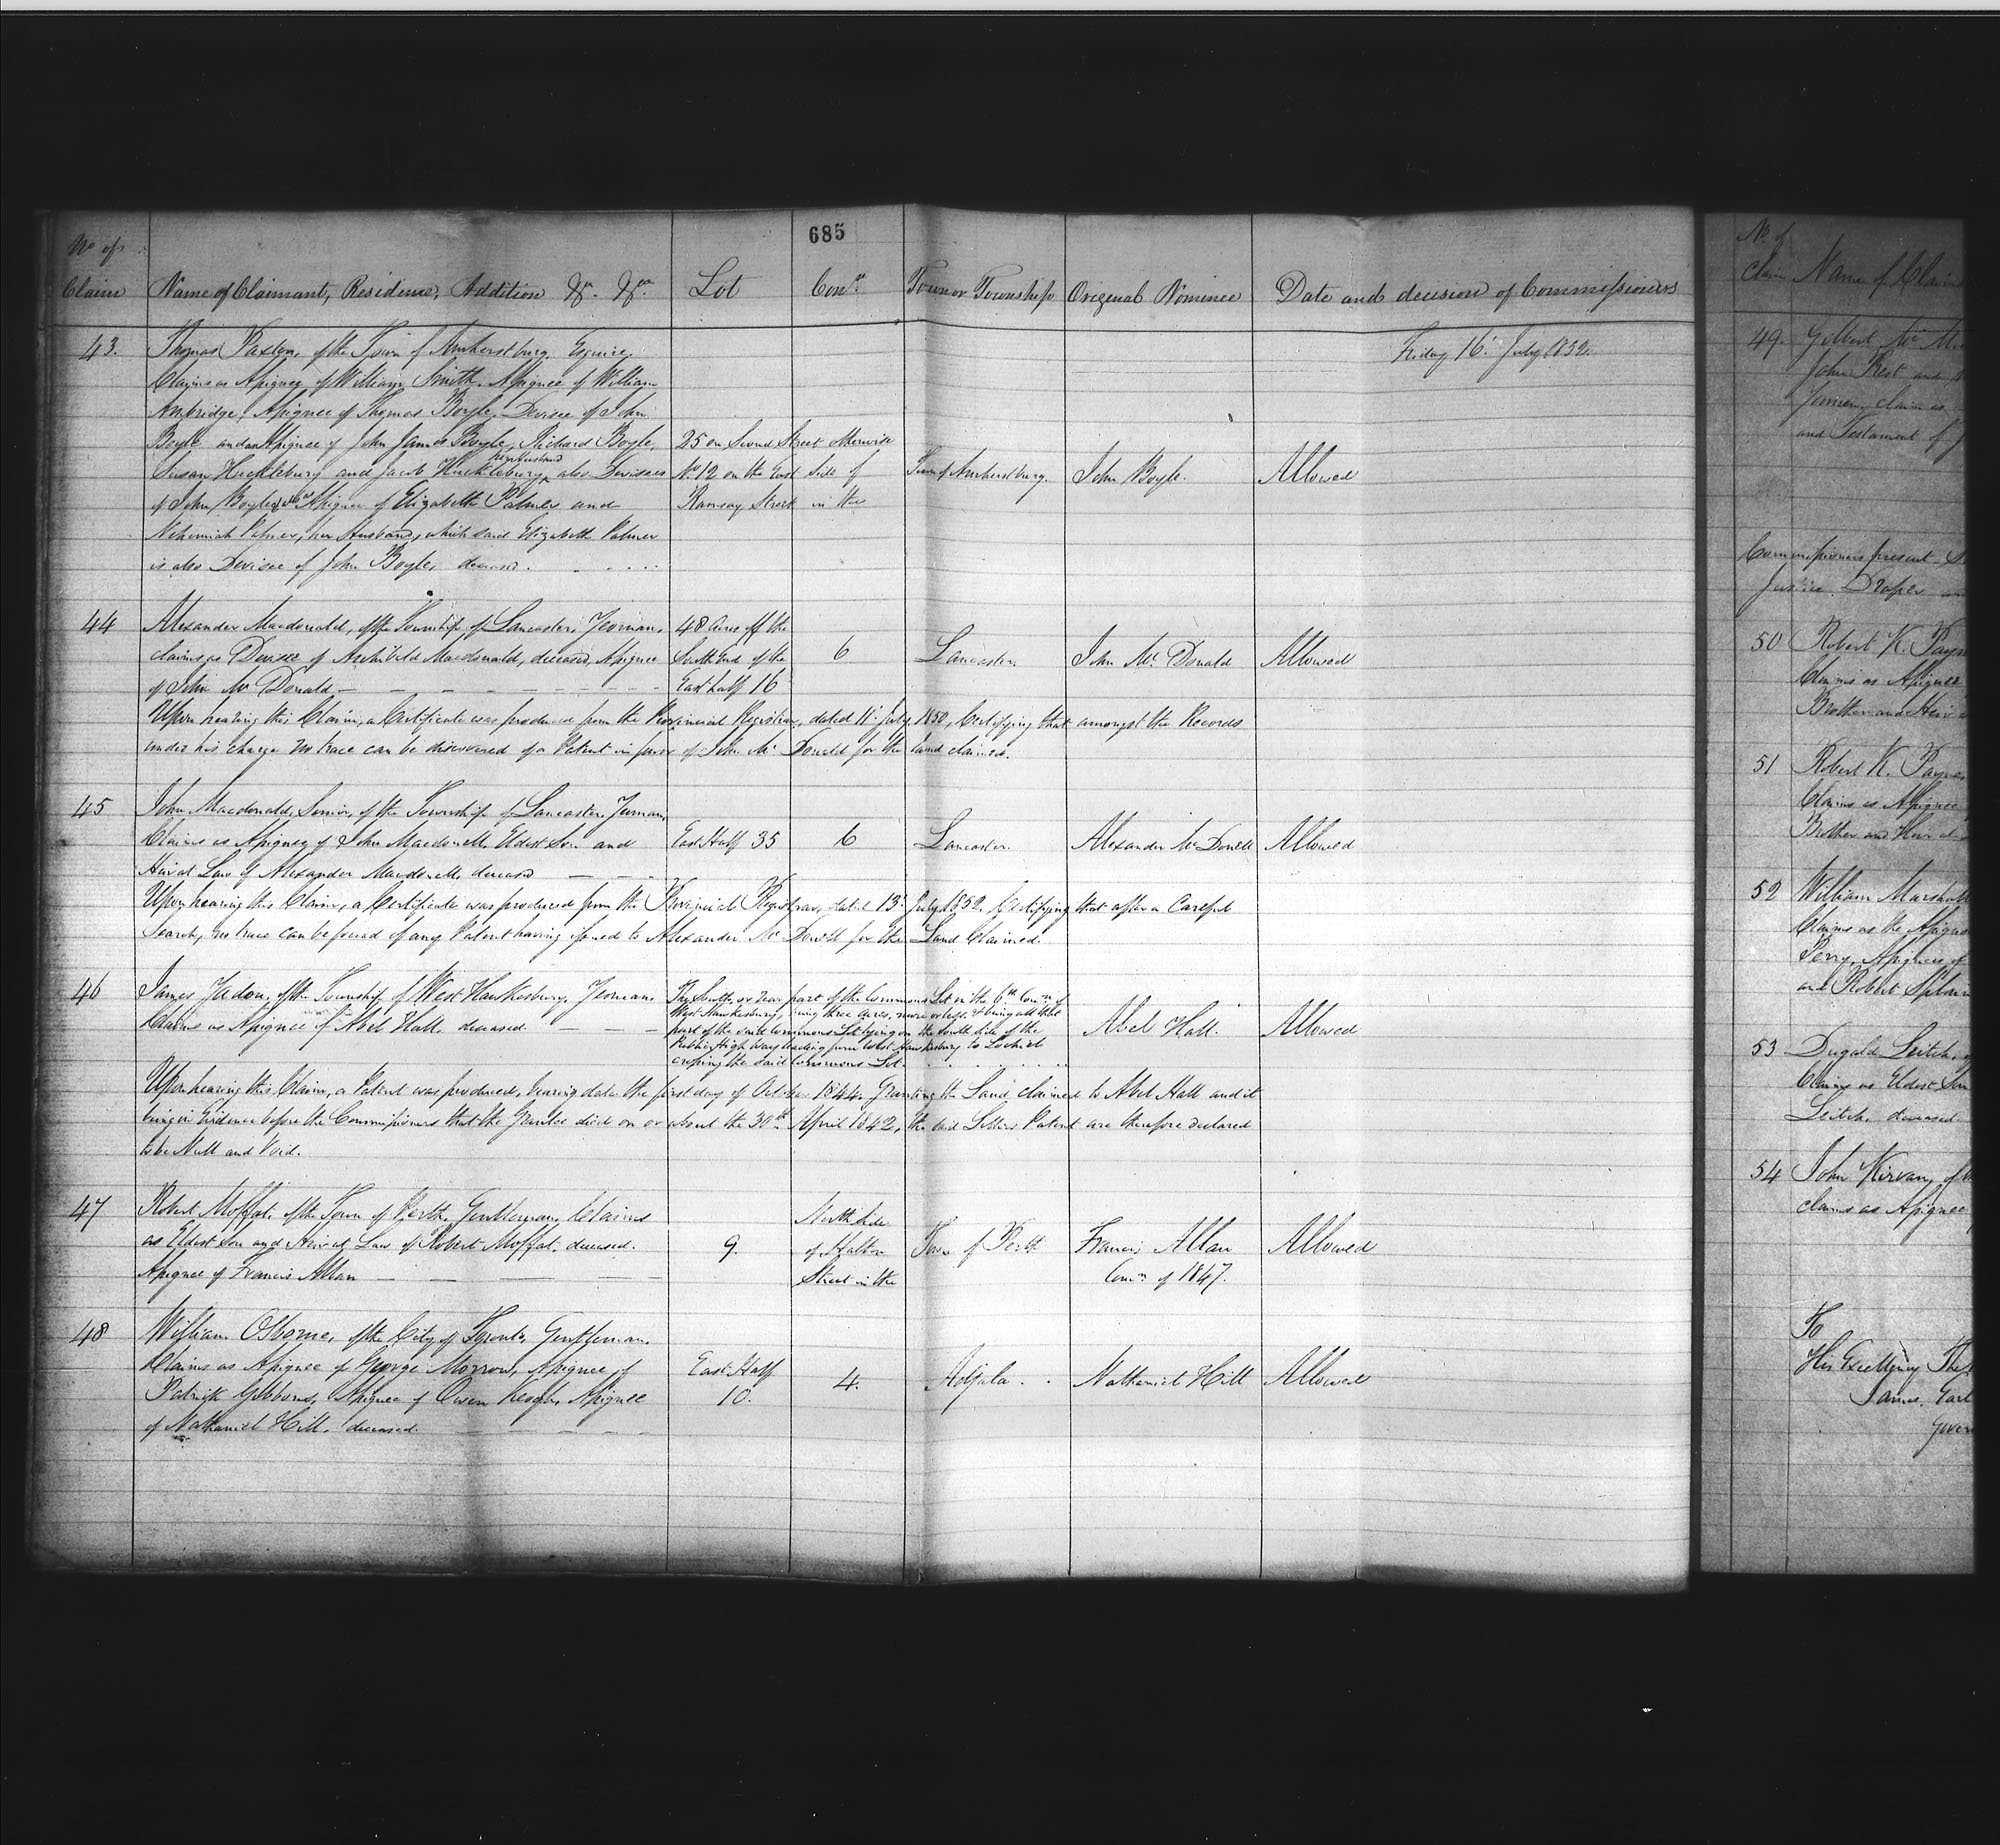 685
No of Claim
Name of Claimant, Residence, Addition &c. &ca.
Lot
Con.n
Town or Township
Original Nominee
Date and decision of Commissioners
Friday 16th July 1852.
43. Thomas Paxton, of the Town of Amherstburg, Esquire,
Claims as Assignee of William Smith, Assignee of William
Ambridge, Assignee of Thomas Boyle, Devisee of John
Boyle and as Assignee of John James Boyle, Richard Boyle,
Susan Huckleburg and Jacob Huckleburg her husband, also Devisees
of John Boyle, also Assignee of Elizabeth Palmer and
Nehemiah Palmer, her Husband, which said Elizabeth Palmer
is also Devisee of John Boyle, deceased.
25 on Second Street otherwise
No. 12 on the East side of
Ramsay Street in the
Town of Amherstburg.
John Boyle.
Allowed
44 Alexander Macdonald, of the Township of Lancaster, Yeoman,
claims as Devisee of Archibald Macdonald, deceased, Assignee
of John McDonald
48 Acres off the
South End of the
East half 16
6
Lancaster
John McDonald
Allowed
Upon hearing this Claim, a Certificate was produced from the Provincial Registrar, dated 11th July 1850, Certifying that amongst the Records
under his charge no trace can be discovered of a Patent in favor of John McDonald for the land claimed.
45 John Macdonald, Senior, of the Township of Lancaster, Yeoman,
Claims as Assignee of John Macdonell, Eldest Son and
Heir at Law of Alexander Macdonell, deceased
East Half 35
6
Lancaster.
Alexander McDonell
Allowed
Upon hearing this Claim, a Certificate was produced from the Provincial Registrar, dated 13th July 1852, Certifying that after a Careful
Search, no trace can be found of any Patent having issued to Alexander McDonell for the Land Claimed.
46 James Jadon, of the Township of West Hawkesbury, Yeoman,
Claims as Assignee of Abel Hall, deceased
The South or rear part of the Commons Lot in the 6th Con.n of
West Hawkesbury, being three Acres, more or less, & being all that
part of the said Commons Lot lying on the South side of the
Public High Way leading from West Hawkesbury to Lochiel
crossing the said Commons Lot.
Abel Hall.
Allowed
Upon hearing this Claim, a Patent was produced, bearing date the first day of October 1844, Granting the Land claimed to Abel Hall and it
being in Evidence before the Commissioners that the Grantee died on or about the 30th April 1842, the said Letters Patent are therefore declared
to be Null and Void.
47 Robert Moffat, of the Town of Perth, Gentleman, Claims
as Eldest Son and Heir at Law of Robert Moffat, deceased,
Assignee of Francis Allan
9.
North side
of Halton
Street in the
Town of Perth
Francis Allan
Com.n of 1847.
Allowed
48 William Osborne, of the City of Toronto, Gentleman,
Claims as Assignee of George Morrow, Assignee of
Patrick Gibbons, Assignee of Owen Keogh, Assignee
of Nathaniel Hill, deceased.
East Half
10.
4.
Adjala
Nathaniel Hill
Allowed
No of Claim
Name of Claim
49. Gilbert Mc
John Rest and
Yeomen, claim as
and Testament of J
Commissioners present
Justice Draper
50 Robert K. Payn
Claims as Assignee
Brother and Heir
51 Robert K. Payne
Claims as Assignee
Brother and Heir at
52 William Marshall
Claims as the Assigne
Perry, Assignee of
and Robert
53 Dugald Leitch,
Claims as Eldest Son
Leitch, deceased.
54 John Kirvan, of
claims as Assignee
To
His Excellency The
James, Earl
Gover